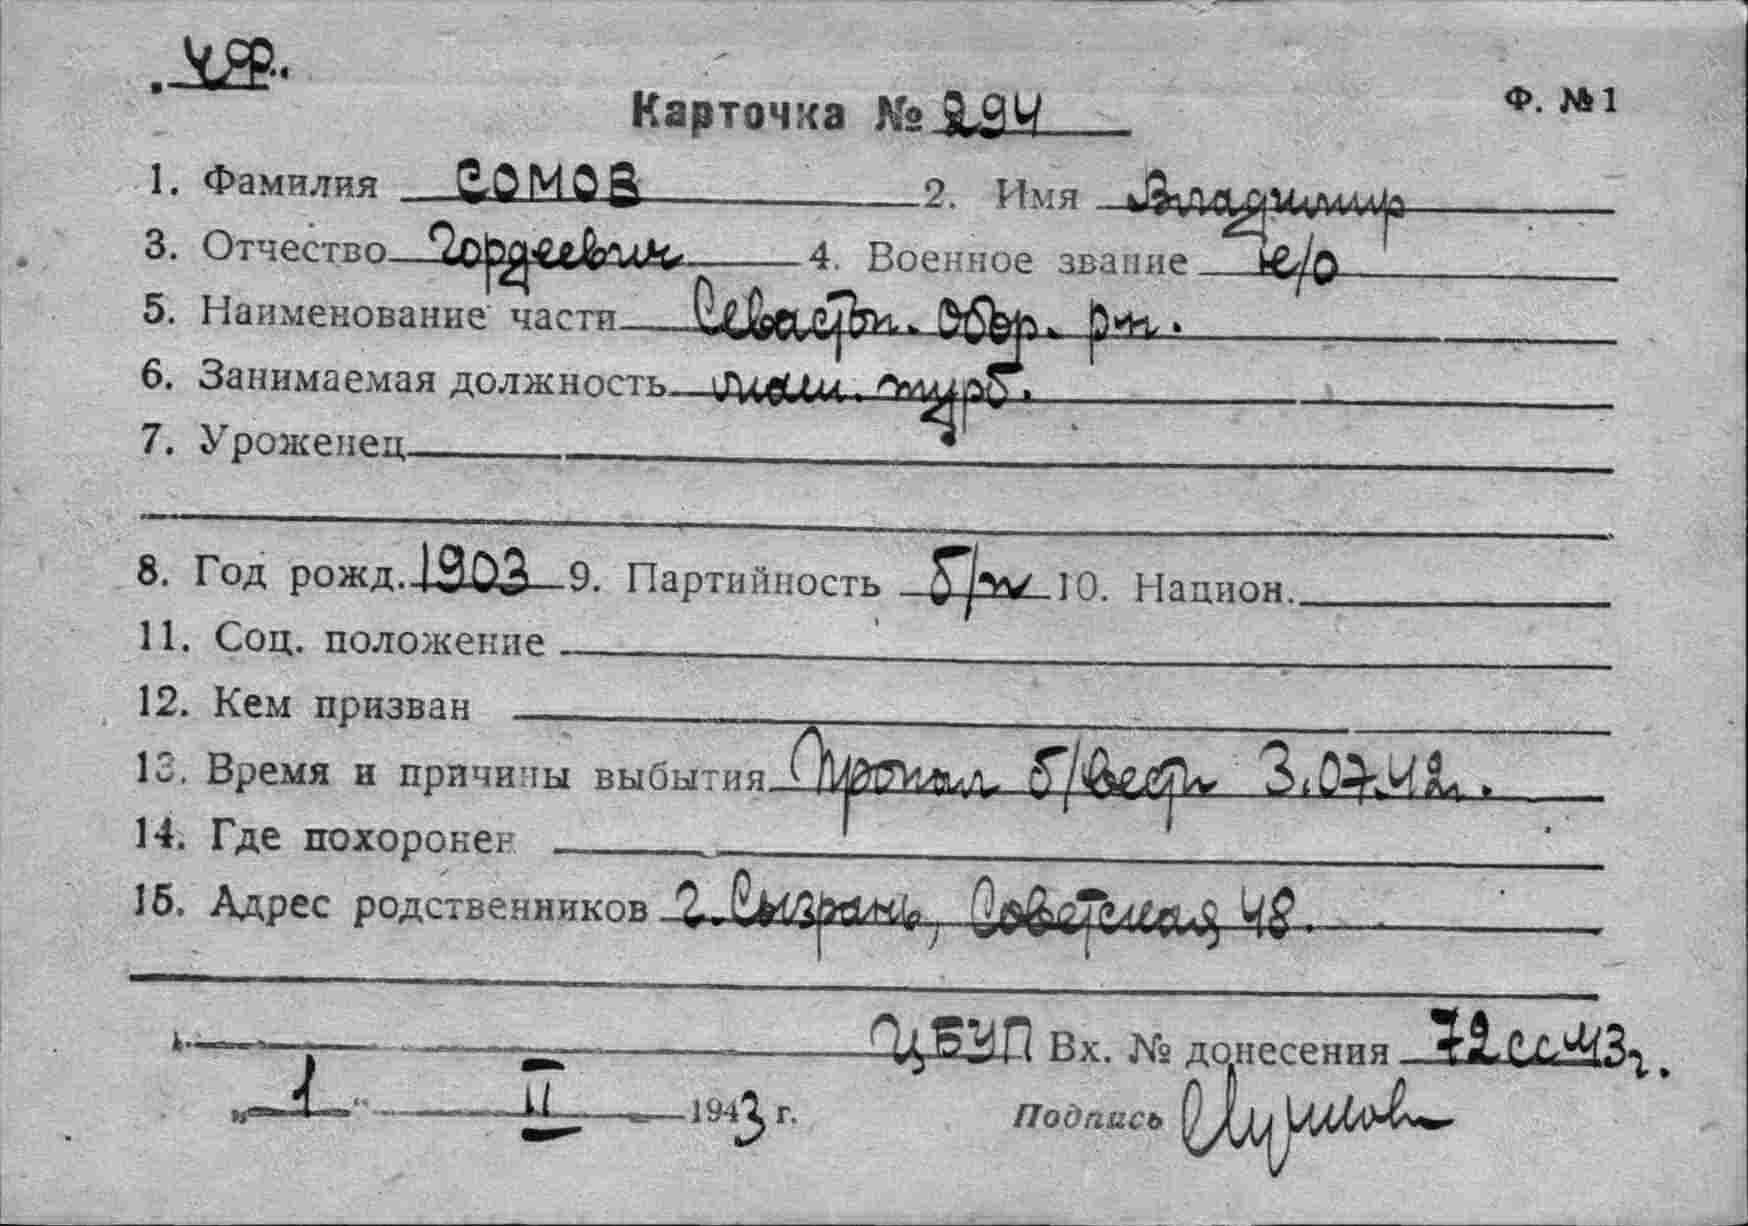 ЧФ.
Карточка № 294 Ф. №1
1. Фамилия СОМОВ 2. Имя Владимир
3. Отчество Гордеевич 4. Военное звание
5. Наименование части Севастоп. обор. рн.
6. Занимаемая должность маш. турб.
7. Уроженец
8. Год рожд. 1903 9. Партийность б/п 10. Национ.
11. Соц. положение
12. Кем призван
13. Время и причины выбытия Пропал б/вести 3.07.42г.
14. Где похоронен
15. Адрес родственников г. Сызрань, Советская 48.
ЦБУП Вх. № донесения 72сс 43г.
„1“ II 1943 г. Подпись